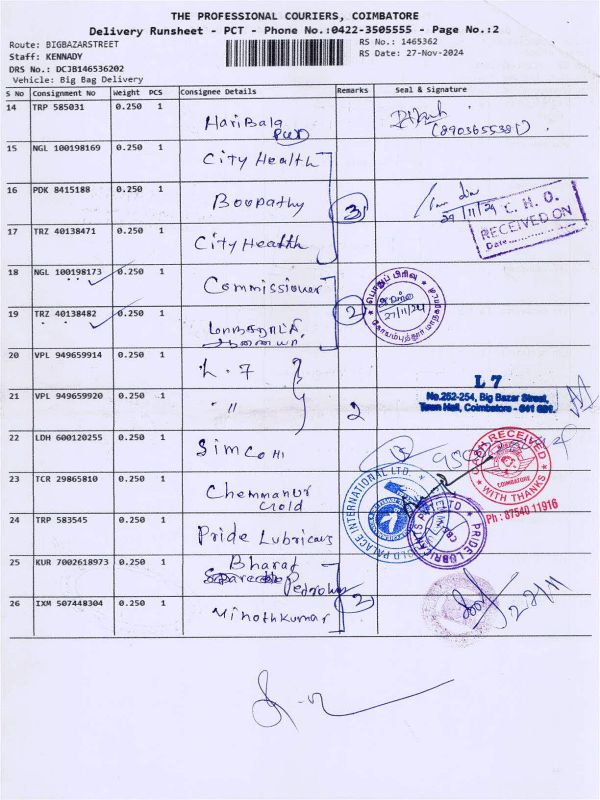 THE PROFESSIONAL COURIERS, COIMBATORE
Delivery Runsheet - PCT - Phone No.:0422-3505555 - Page No.:2
Route: BIGBAZARSTREET
RS No.: 1465362
Staff: KENNADY
RS Date: 27-Nov-2024
DRS No.: DCJB146536202
Vehicle: Big Bag Delivery
S No Consignment No Weight PCS Consignee Details Remarks Seal & Signature
14 TRP 585031 0.250 1 HariBala
(8903655381)
15 NGL 100198169 0.250 1 City Health
16 PDK 8415188 0.250 1 Boopathy 3
29/11/24
C. H. O.
RECEIVED ON
Date
17 TRZ 40138471 0.250 1 City Health
18 NGL 100198173 0.250 1 Commissioner
பொதுப் பிரிவு
27/11/24
19 TRZ 40138482 0.250 1 மாநகராட்சி 2
ஆணையர்
20 VPL 949659914 0.250 1 L. 7
21 VPL 949659920 0.250 1 " 2
L 7
No.252-254, Big Bazar Street,
Town Hall, Coimbatore - 641 001.
22 LDH 600120255 0.250 1 Simco
RECEIVED
COIMBATORE
WITH THANKS
Ph : 87540 11916
23 TCR 29865810 0.250 1 Chemmanur
Gold
GOLD PALACE INTERNATIONAL LTD
24 TRP 583545 0.250 1 Pride Lubricans
PRIDE LUBRICANTS
CBE
25 KUR 7002618973 0.250 1 Bharat
Petroleum
26 IXM 507448304 0.250 1 Vinothkumar 2